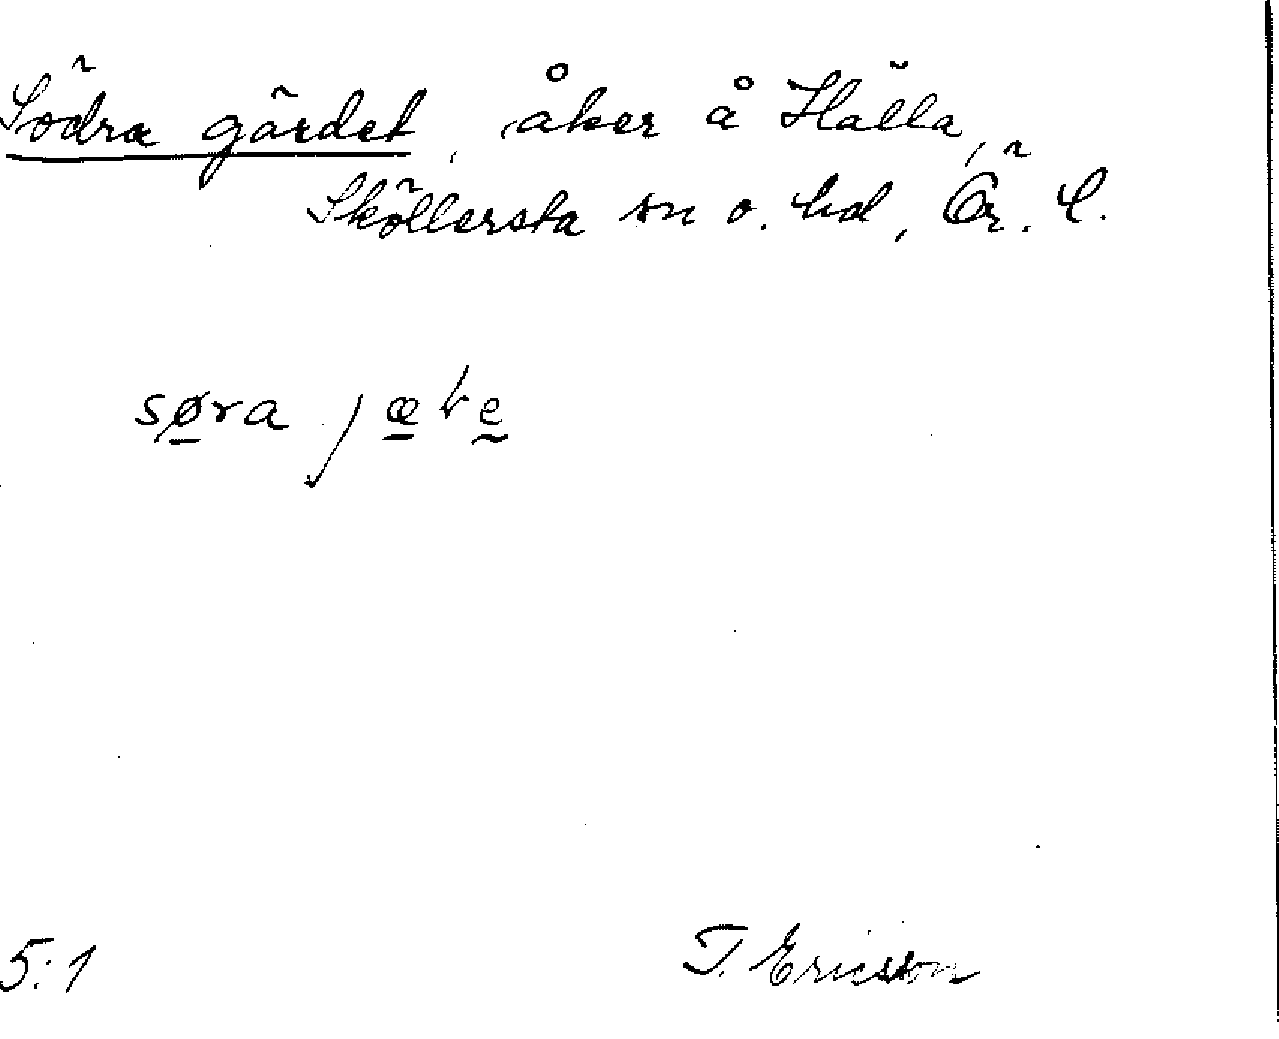 Södra gärdet, åker å Hälla,
Sköllersta sn o. hd, Ör. l.
søra
5:1
T. Ericson